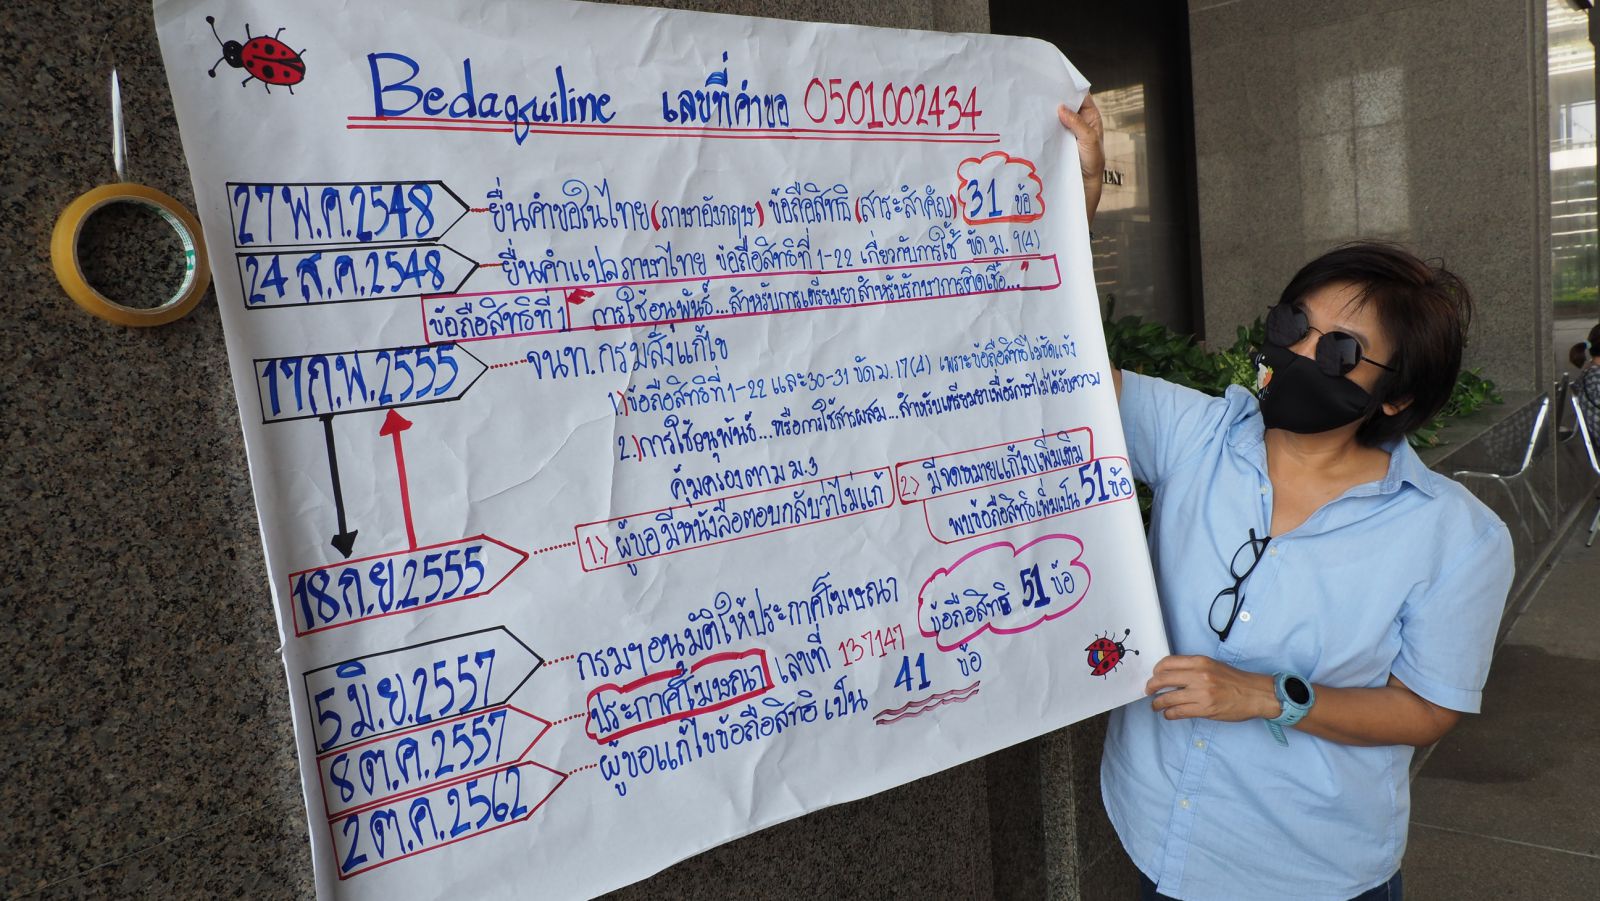 Bedaquiline เลขที่คำขอ 0501002434
27 พ.ค. 2548 ยื่นคำขอในไทย (ภาษาอังกฤษ) ข้อถือสิทธิ (สาระสำคัญ) 31 ข้อ
24 ส.ค. 2548 ยื่นคำแปลภาษาไทย ข้อถือสิทธิที่ 1-22 เกี่ยวกับการใช้ ขัด ม. 9(4)
ข้อถือสิทธิที่ 1 การใช้อนุพันธ์...สำหรับการเตรียมยาสำหรับรักษาการติดเชื้อ...
17 ก.พ. 2555 จนท. กรมสั่งแก้ไข
1.) ข้อถือสิทธิที่ 1-22 และ 30-31 ขัด ม. 17(4) เพราะข้อถือสิทธิไม่ชัดแจ้ง
2.) การใช้อนุพันธ์...หรือการใช้สารผสม...สำหรับเตรียมยาเพื่อรักษาไม่ได้รับความ
คุ้มครองตาม ม.3
18 ก.ย. 2555 1.) ผู้ขอมีหนังสือตอบกลับว่าไม่แก้
2.) มีจดหมายแก้ไขเพิ่มเติม
พบข้อถือสิทธิเพิ่มเป็น 51 ข้อ
5 มิ.ย. 2557 กรมฯ อนุมัติให้ประกาศโฆษณา ข้อถือสิทธิ 51 ข้อ
8 ต.ค. 2557 ประกาศโฆษณา เลขที่ 137147
2 ต.ค. 2562 ผู้ขอแก้ไขข้อถือสิทธิเป็น 41 ข้อ